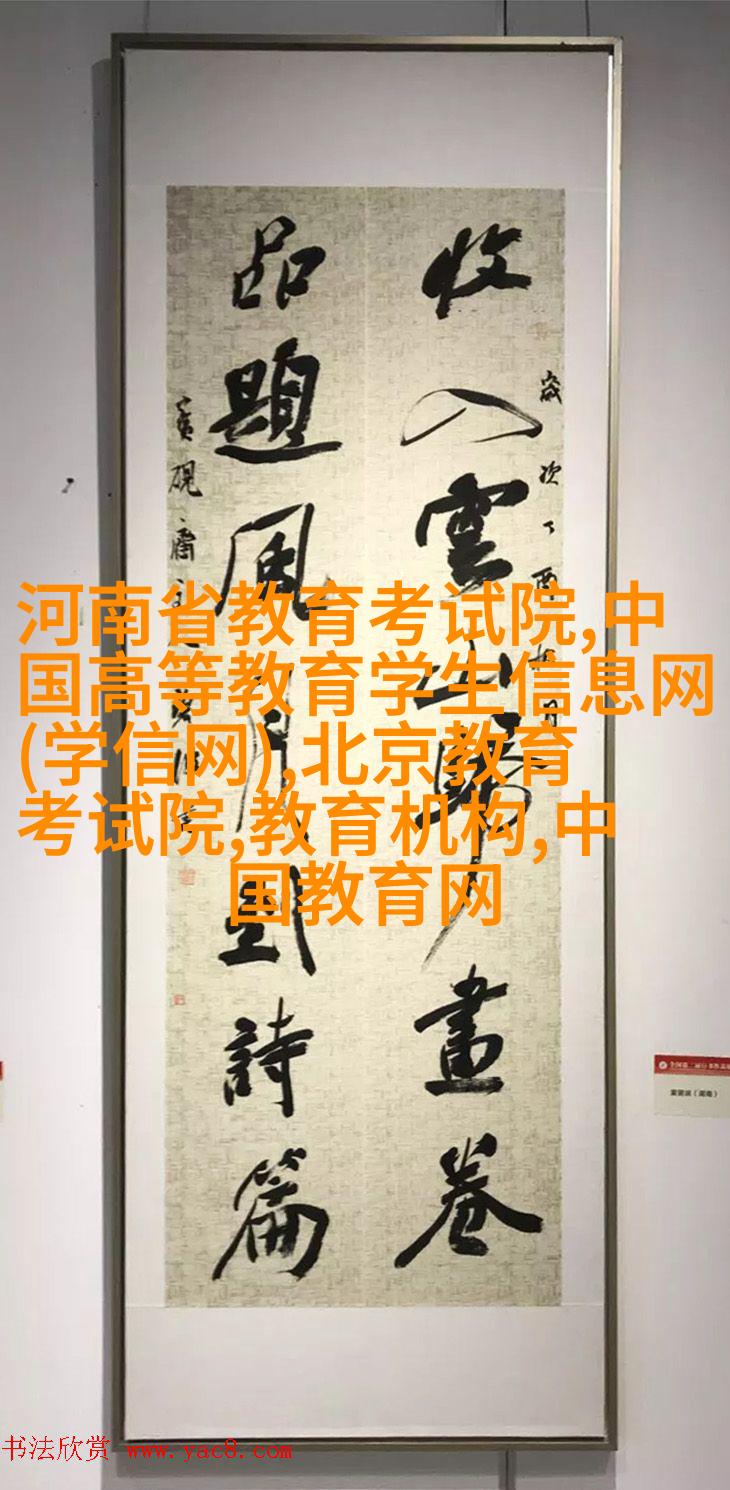 收入雲山歸畫卷
歲次丁酉
品題風月到詩篇
賓硯齋
河南省教育考试院,中
国高等教育学生信息网
(学信网),北京教育
考试院,教育机构,中
国教育网
书法欣赏 www.yac8.com